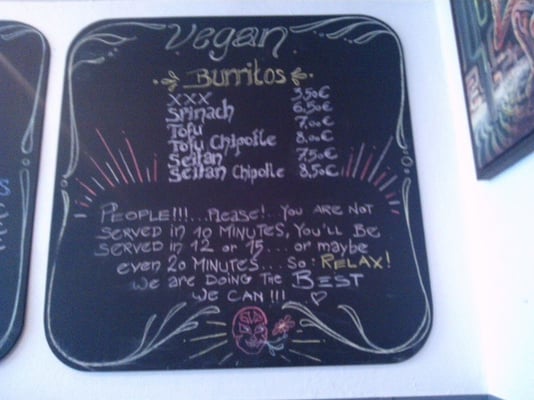 Vegan
Burritos
xxx 5.50€
Spinach 6.50€
Tofu 7.00€
Tofu Chipotle 8.00€
Seitan 7.50€
Seitan Chipotle 8.50€
PEOPLE!!!...Please!..You are not
served in 10 minutes, you'll be
served in 12 or 15... or maybe
even 20 minutes... so: RELAX!
We are doing the BEST
We can!!! ♡